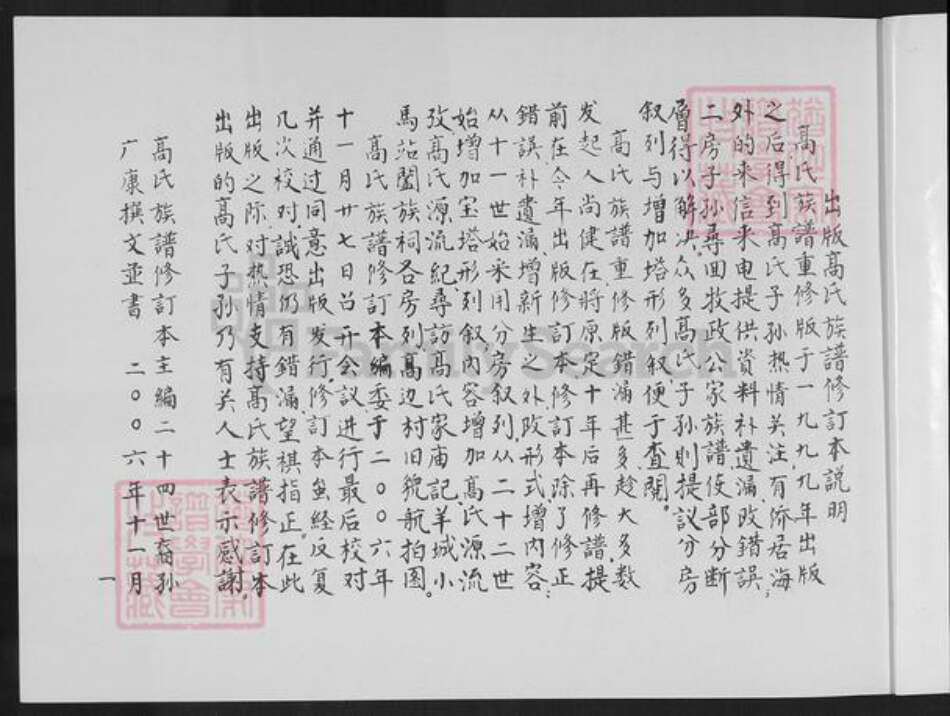 出版高氏族譜修订本説明
高氏族譜重修版于一九九九年出版
之后,得到高氏子孙热情关注,有侨居海
外的来信来电提供资料补遗漏,改错誤;
二房子孙尋回牧政公家族譜,使部分断
層得以解决。众多高氏子孙則提议分房
叙列与增加塔形列叙,便于查閲。
高氏族譜重修版錯漏甚多,趁大多数
发起人尚健在,将原定十年后再修譜,提
前在今年出版修订本。修订本除了修正
錯誤,补遺漏,增新生之外,改形式,增内容;
从十一世始采用分房叙列,从二十二世
始增加宝塔形列叙;内容增加高氏源流
攷,高氏源流紀,尋訪高氏家庙記,羊城小
馬站闔族祠各房列,高边村旧貌航拍图。
高氏族譜修订本編委于二〇〇六年
十一月廿七日召开会议,进行最后校对
并通过同意出版发行。修订本虽经反复
几次校对,誠恐仍有錯漏,望祺指正。在此
出版之际,对热情支持高氏族譜修订本
出版的高氏子孙乃有关人士表示感謝。
高氏族譜修订本主編二十四世裔孙
广康撰文並書 二〇〇六年十一月
一
FamilySearch